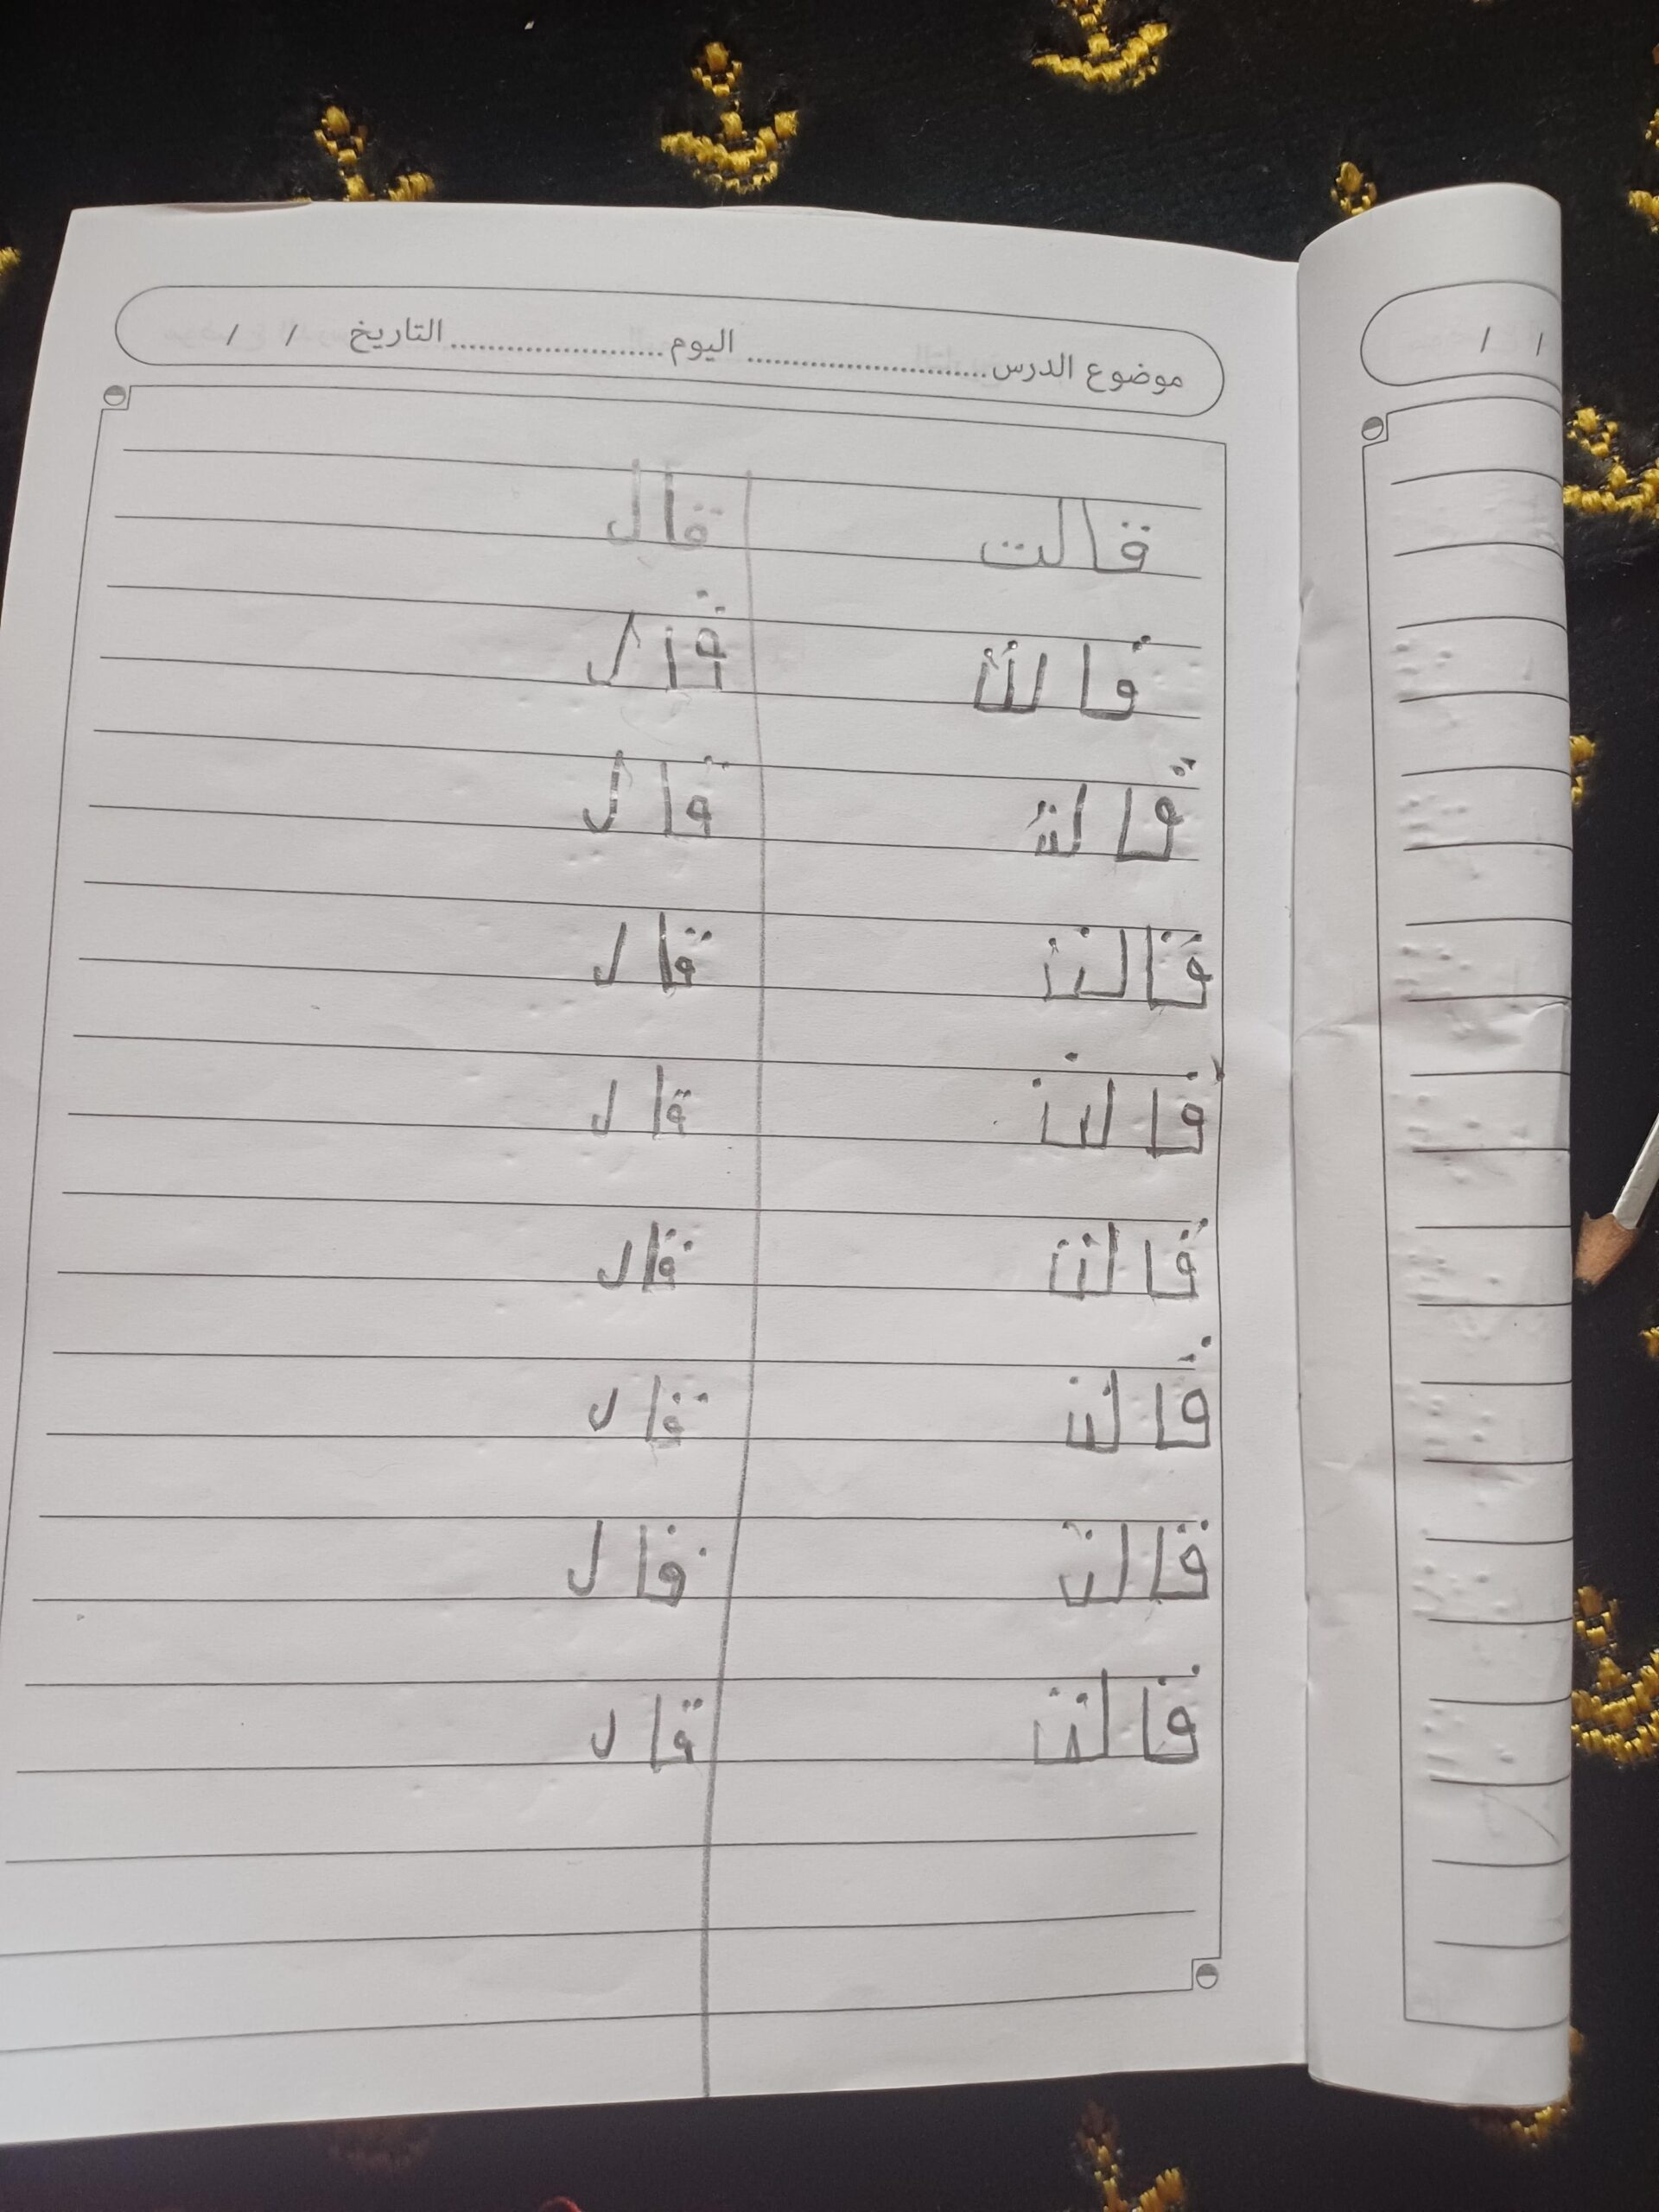 موضوع الدرس........................ اليوم........................ التاريخ / /
قالت قال
قالت قال
قالت قال
قالت قال
قالت قال
قالت قال
قالت قال
قالت قال
قالت قال